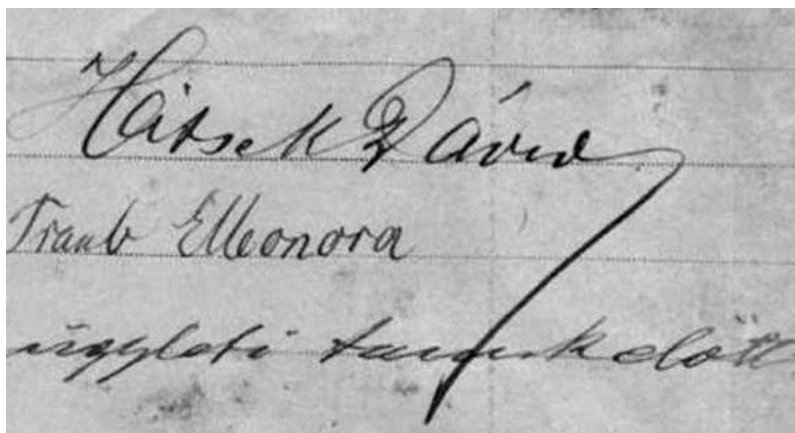 Hátsek Dávid
Traub Elleonora
ügyleti tanuk előtt